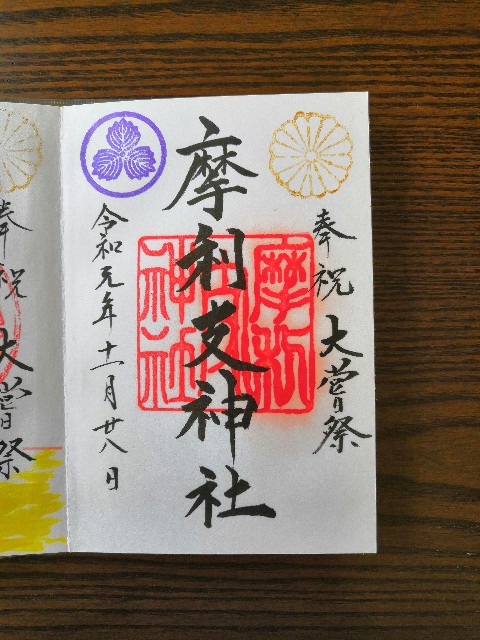 奉祝 大嘗祭
摩利支神社
摩利支神社
令和元年十一月廿八日
奉祝 大嘗祭